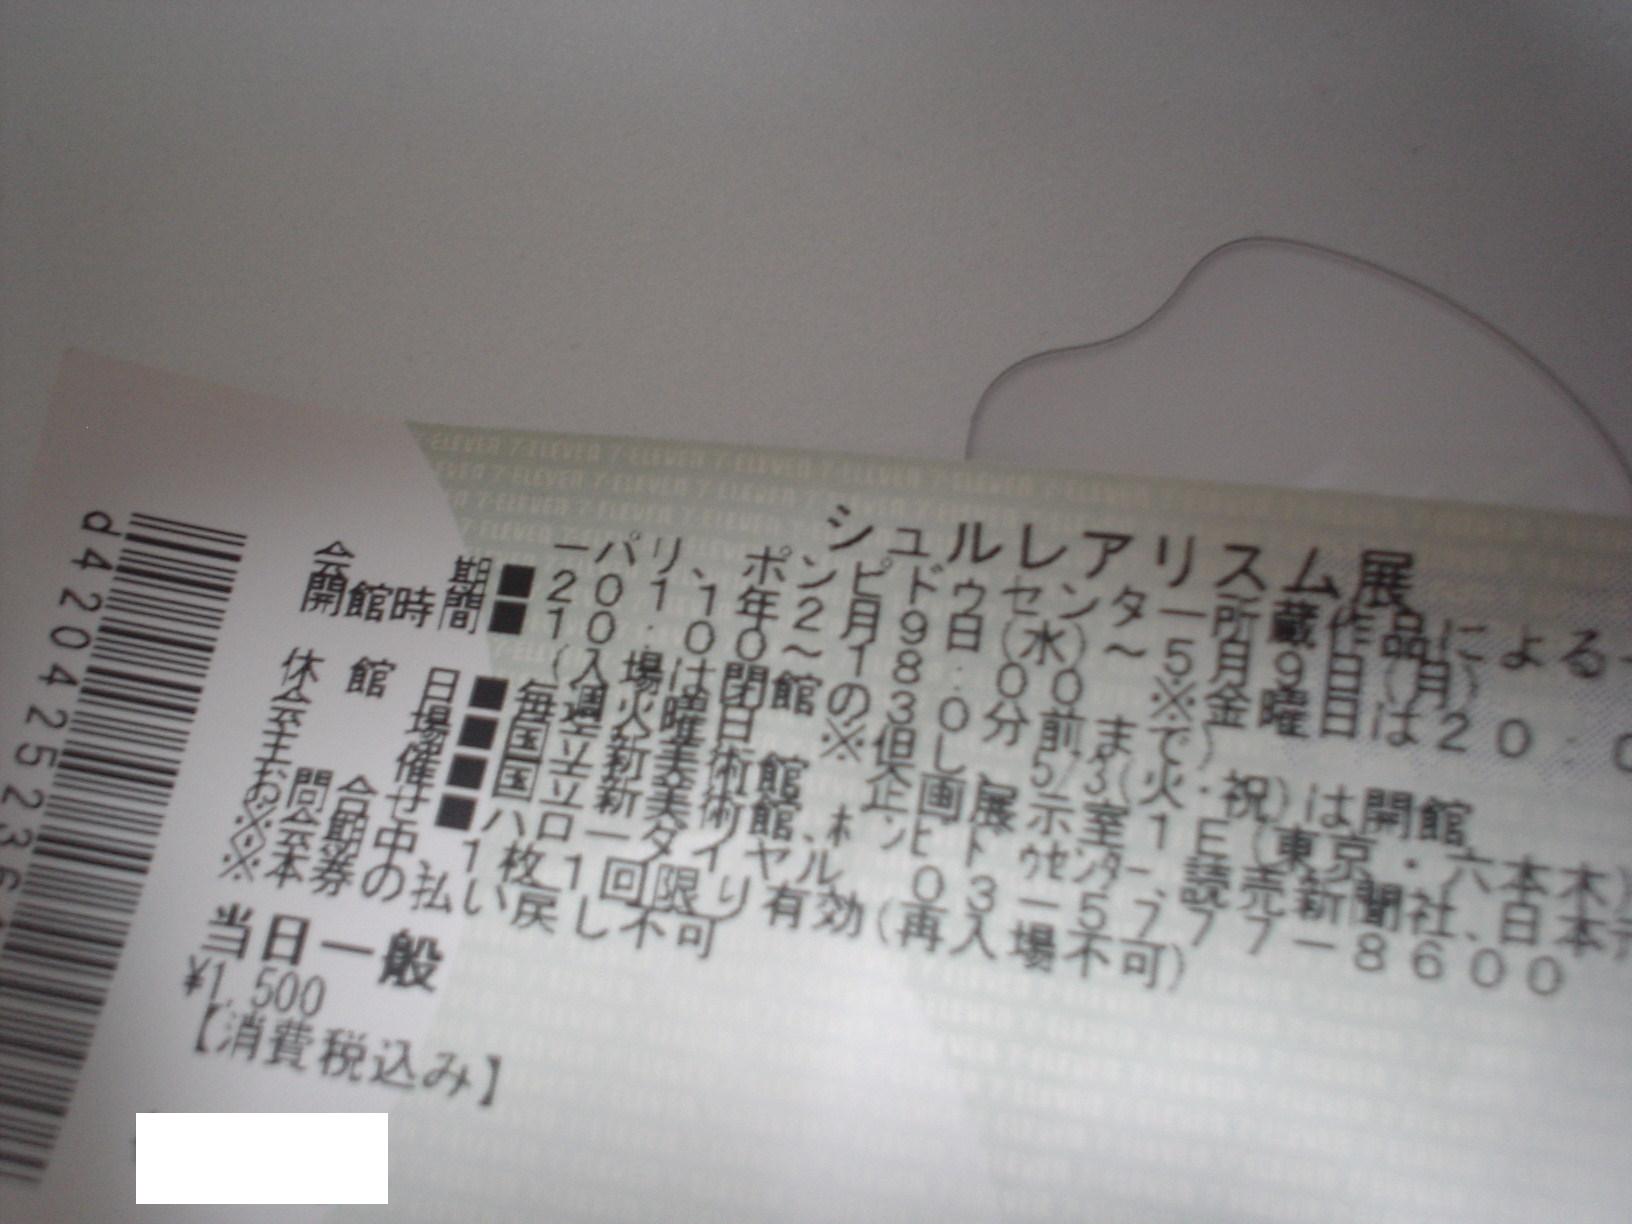 シュルレアリスム展
ーパリ、ポンピドゥセンター所蔵作品によるー
会期■2011年2月9日(水)~5月9日(月)
開館時間■10:00~18:00 ※金曜日は20:0
(入場は閉館の30分前まで)
休館日■毎週火曜日 ※但し5/3(火・祝)は開館
会場■国立新美術館 企画展示室1E(東京・六本木)
主催■国立新美術館、ポンピドゥセンター、読売新聞社、日本テ
お問合せ■ハローダイヤル 03-5777-8600
※会期中、1枚1回限り有効(再入場不可)
※本券の払い戻し不可
当日一般
¥1,500
【消費税込み】
d420425236
7-ELEVEN 7-ELEVEN 7-ELEVEN 7-ELEVEN 7-ELEVEN